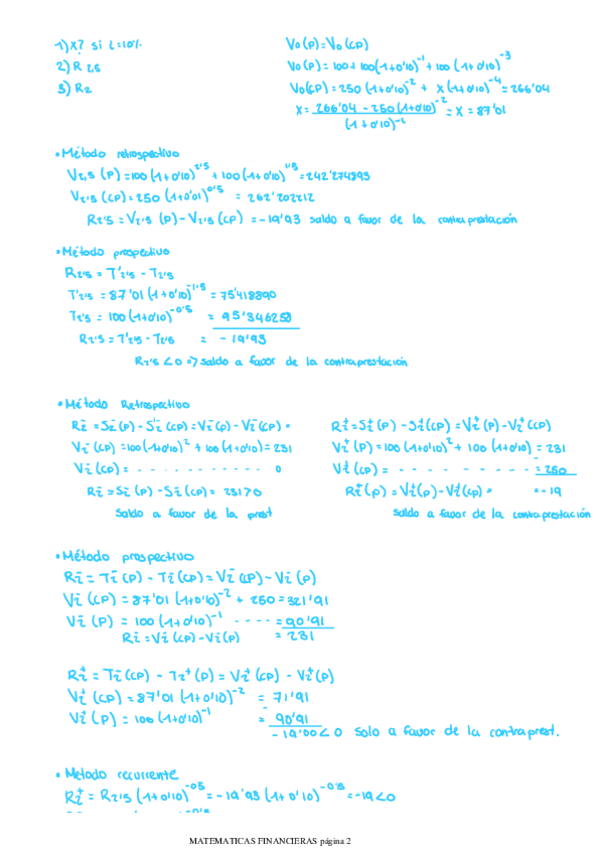 1) X? si i=10%
2) R 2,5
3) R2
V0(P)=V0(CP)
V0(P)=100+100(1+0'10)^-1+100(1+0'10)^-3
V0(CP)=250(1+0'10)^-2+X(1+0'10)^-4=266'04
X=266'04-250(1+0'10)^-2/(1+0'10)^-4=X=87'01
• Método retrospectivo
V2,5(P)=100(1+0'10)^2'5+100(1+0'10)^1'5=242'274893
V2'5(CP)=250(1+0'01)^0'5=262'202212
R2'5=V2'5(P)-V2'5(CP)=-19'93 saldo a favor de la contraprestación
• Método prospectivo
R2'5=T'2'5-T2'5
T'2'5=87'01(1+0'10)^-1'5=75'418890
T2'5=100(1+0'10)^-0'5=95'346258
R2'5=T'2'5-T2'5=-19'93
R2'5<0=>saldo a favor de la contraprestación
• Método Retrospectivo
R2^-=S2^-(P)-S'2^-(CP)=V2^-(P)-V2^-(CP)=
V2^-(CP)=100(1+0'10)^2+100(1+0'10)=231
V2^-(CP)=- - - - - - - - - - - 0
R2^-=S2^-(P)-S2^-(CP)=231>0
Saldo a favor de la prest
R2^+=S2^+(P)-S2^+(CP)=V2^+(P)-V2^+(CP)
V2^+(P)=100(1+0'10)^2+100(1+0'10)=231
V2^+(CP)=- - - - - - -=250
R2^+(P)=V2^+(P)-V2^+(CP)= =-19
saldo a favor de la contraprestación
• Método prospectivo
R2^-=T2^-(P)-T2^-(CP)=V2^-(CP)-V2^-(P)
V2^-(CP)=87'01(1+0'10)^-2+250=321'91
V2^-(P)=100(1+0'10)^-1 - - - -=90'91
R2^-=V2^-(CP)-V2^-(P)=231
R2^+=T2^-(CP)-T2^+(P)=V2^+(CP)-V2^+(P)
V2^+(CP)=87'01(1+0'10)^-2=71'91
V2^+(P)=100(1+0'10)^-1=90'91
-19'00<0 solo a favor de la contraprest.
• Metodo recurrente
R2^+=R2'5(1+0'10)^-0'5=-19'93(1+0'10)^-0'5=-19<0
MATEMATICAS FINANCIERAS página 2